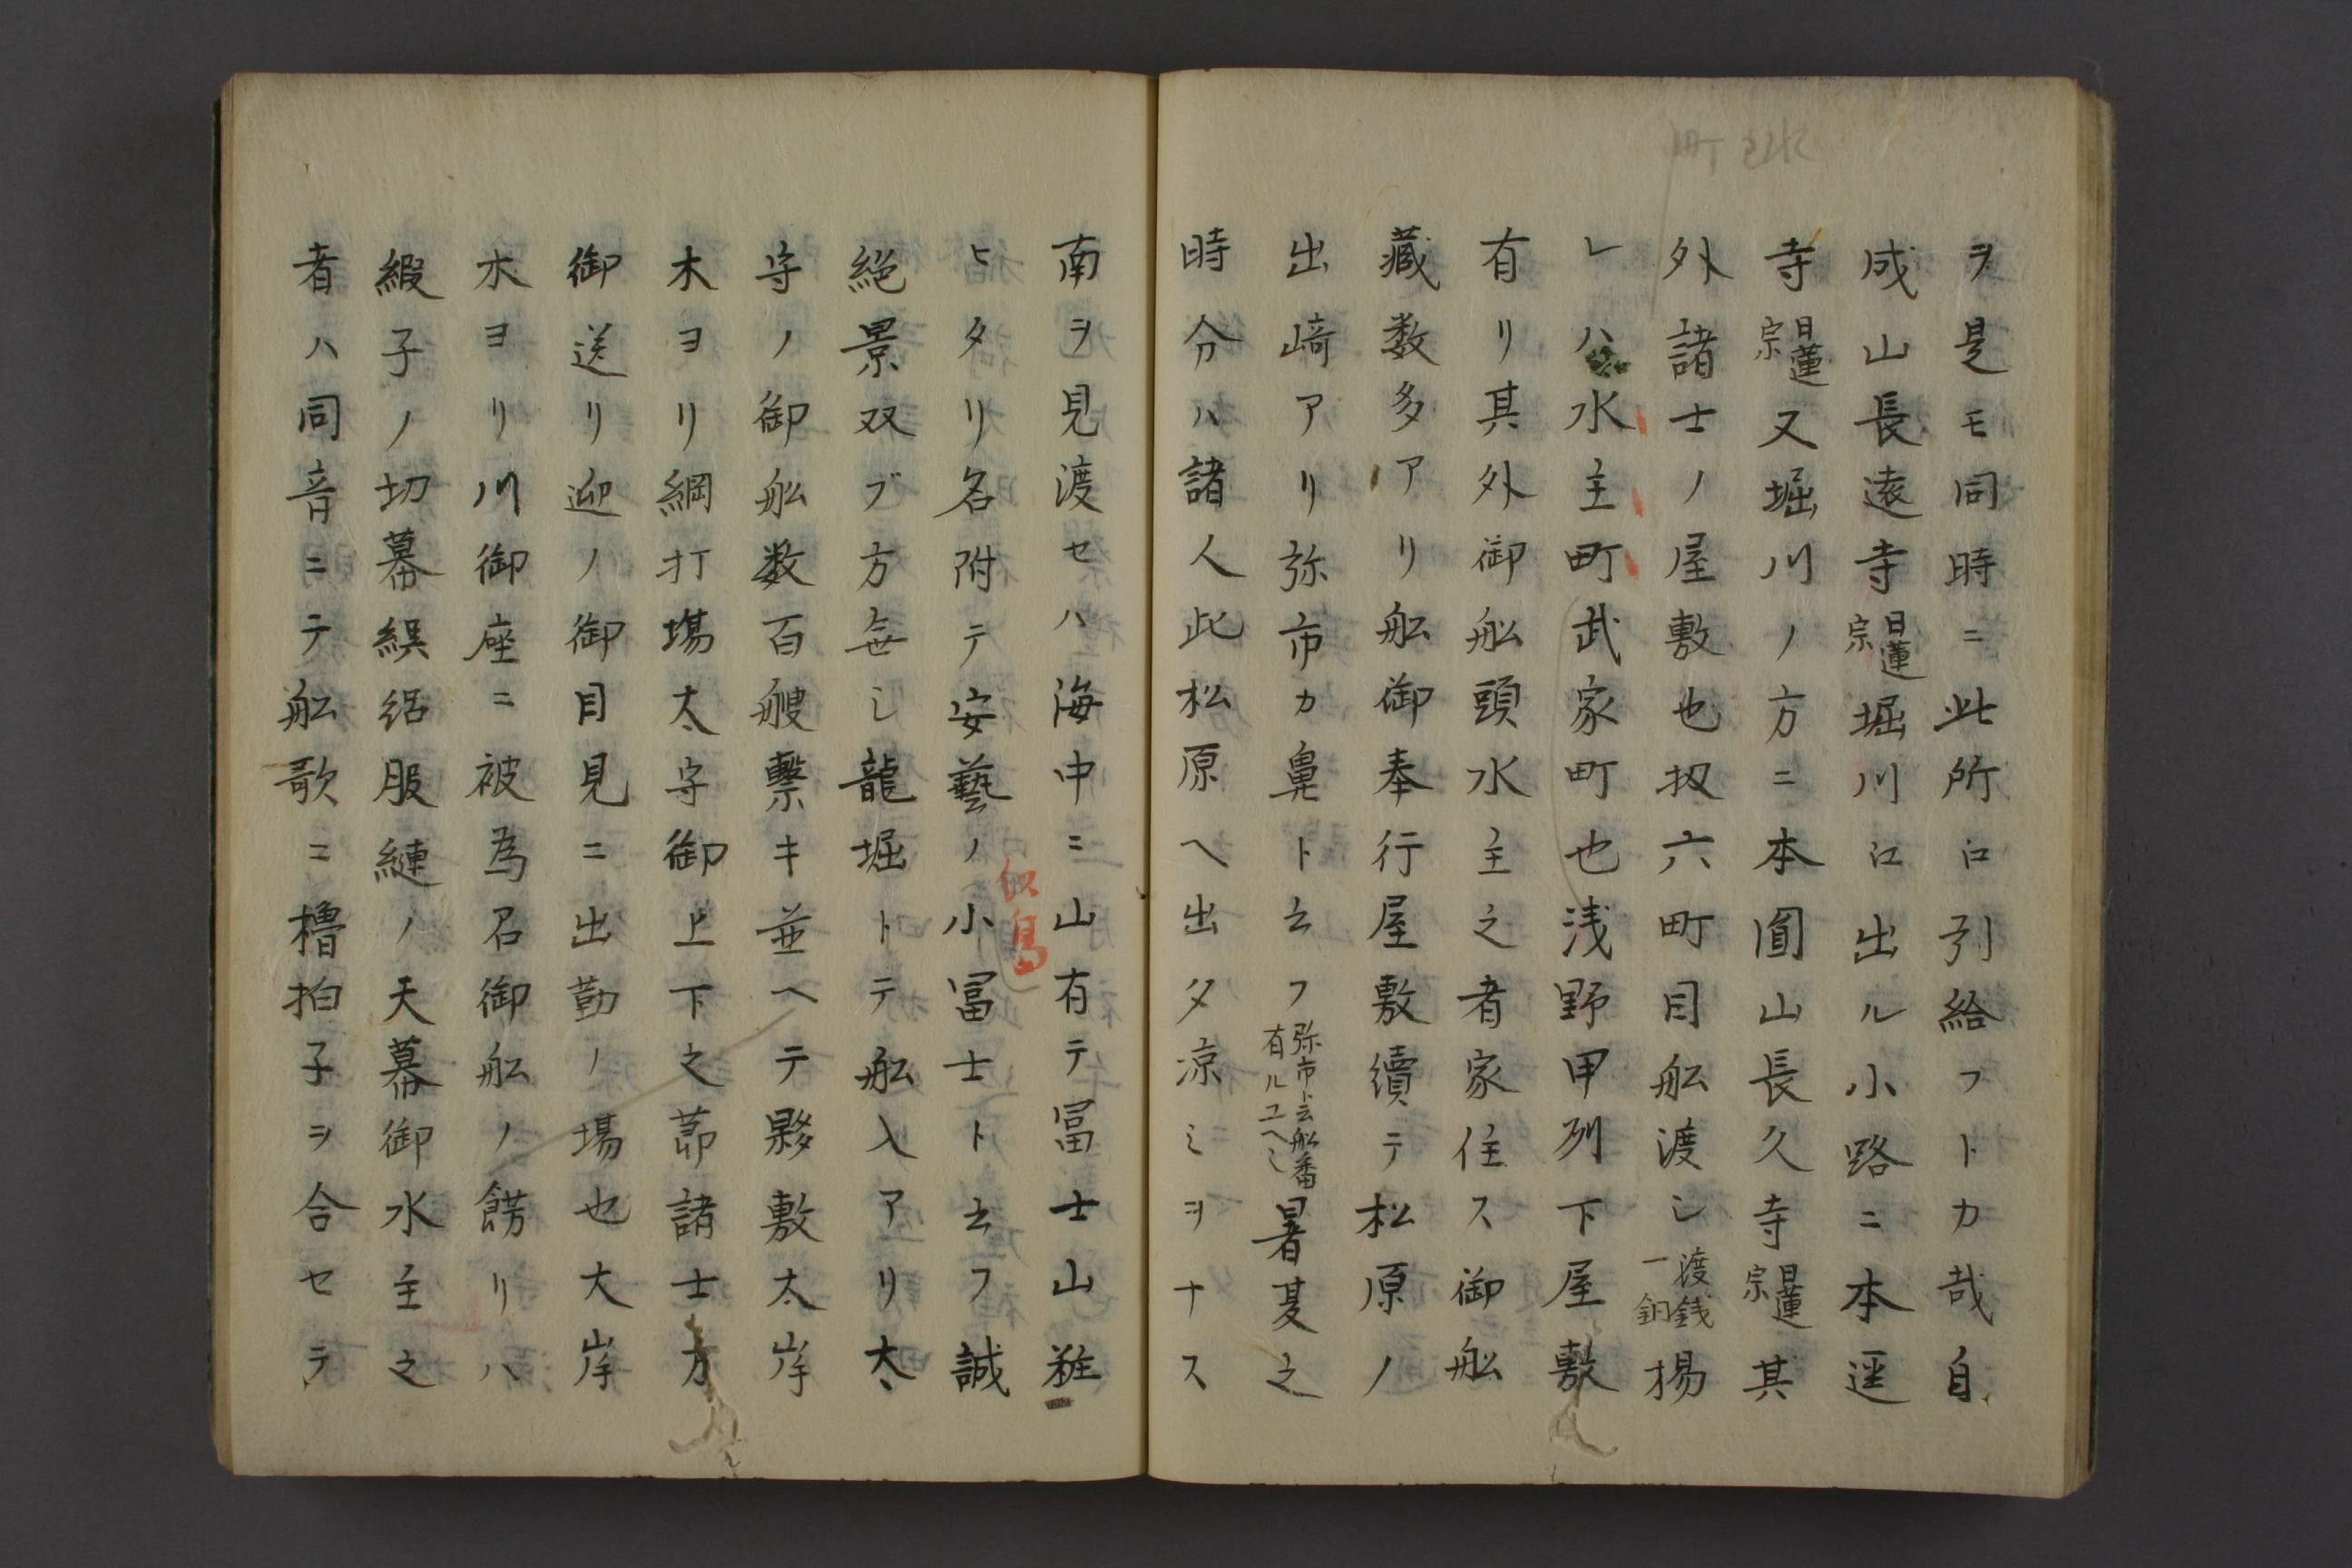 ヲ是モ同時ニ此所江引給フトカ哉自
成山長遠寺日蓮宗堀川江出ル小路ニ本逕
寺日蓮宗又堀川ノ方ニ本圓山長久寺日蓮宗其
外諸士ノ屋敷也扨六町目舩渡シ渡銭一銅揚
レハ水主町武家町也浅野甲列下屋敷
有リ其外御舩頭水主之者家住ス御舩
蔵数多アリ舩御奉行屋敷續テ松原ノ
出﨑アリ弥市カ鼻ト云フ弥市ト云舩番有ルユヘニ暑夏之
時分ハ諸人此松原ヘ出夕凉ミヲナス
南ヲ見渡セハ海中ニ山有テ冨士山粧
ヒタリ名附テ安藝ノ小冨士ト云フ誠
似島
絶景双ブ方無シ龍堀トテ舩入アリ太
守ノ御舩数百艘繋キ並ヘテ夥敷太岸
木ヨリ綱打場太守御上下之節諸士方
御送リ迎ノ御目見ニ出勤ノ場也大岸
木ヨリ川御座ニ被為召御舩ノ餝リハ
緞子ノ切幕縨絽服縺ノ天幕御水主之
者ハ同音ニテ舩歌ニ櫓拍子ヲ合セテ